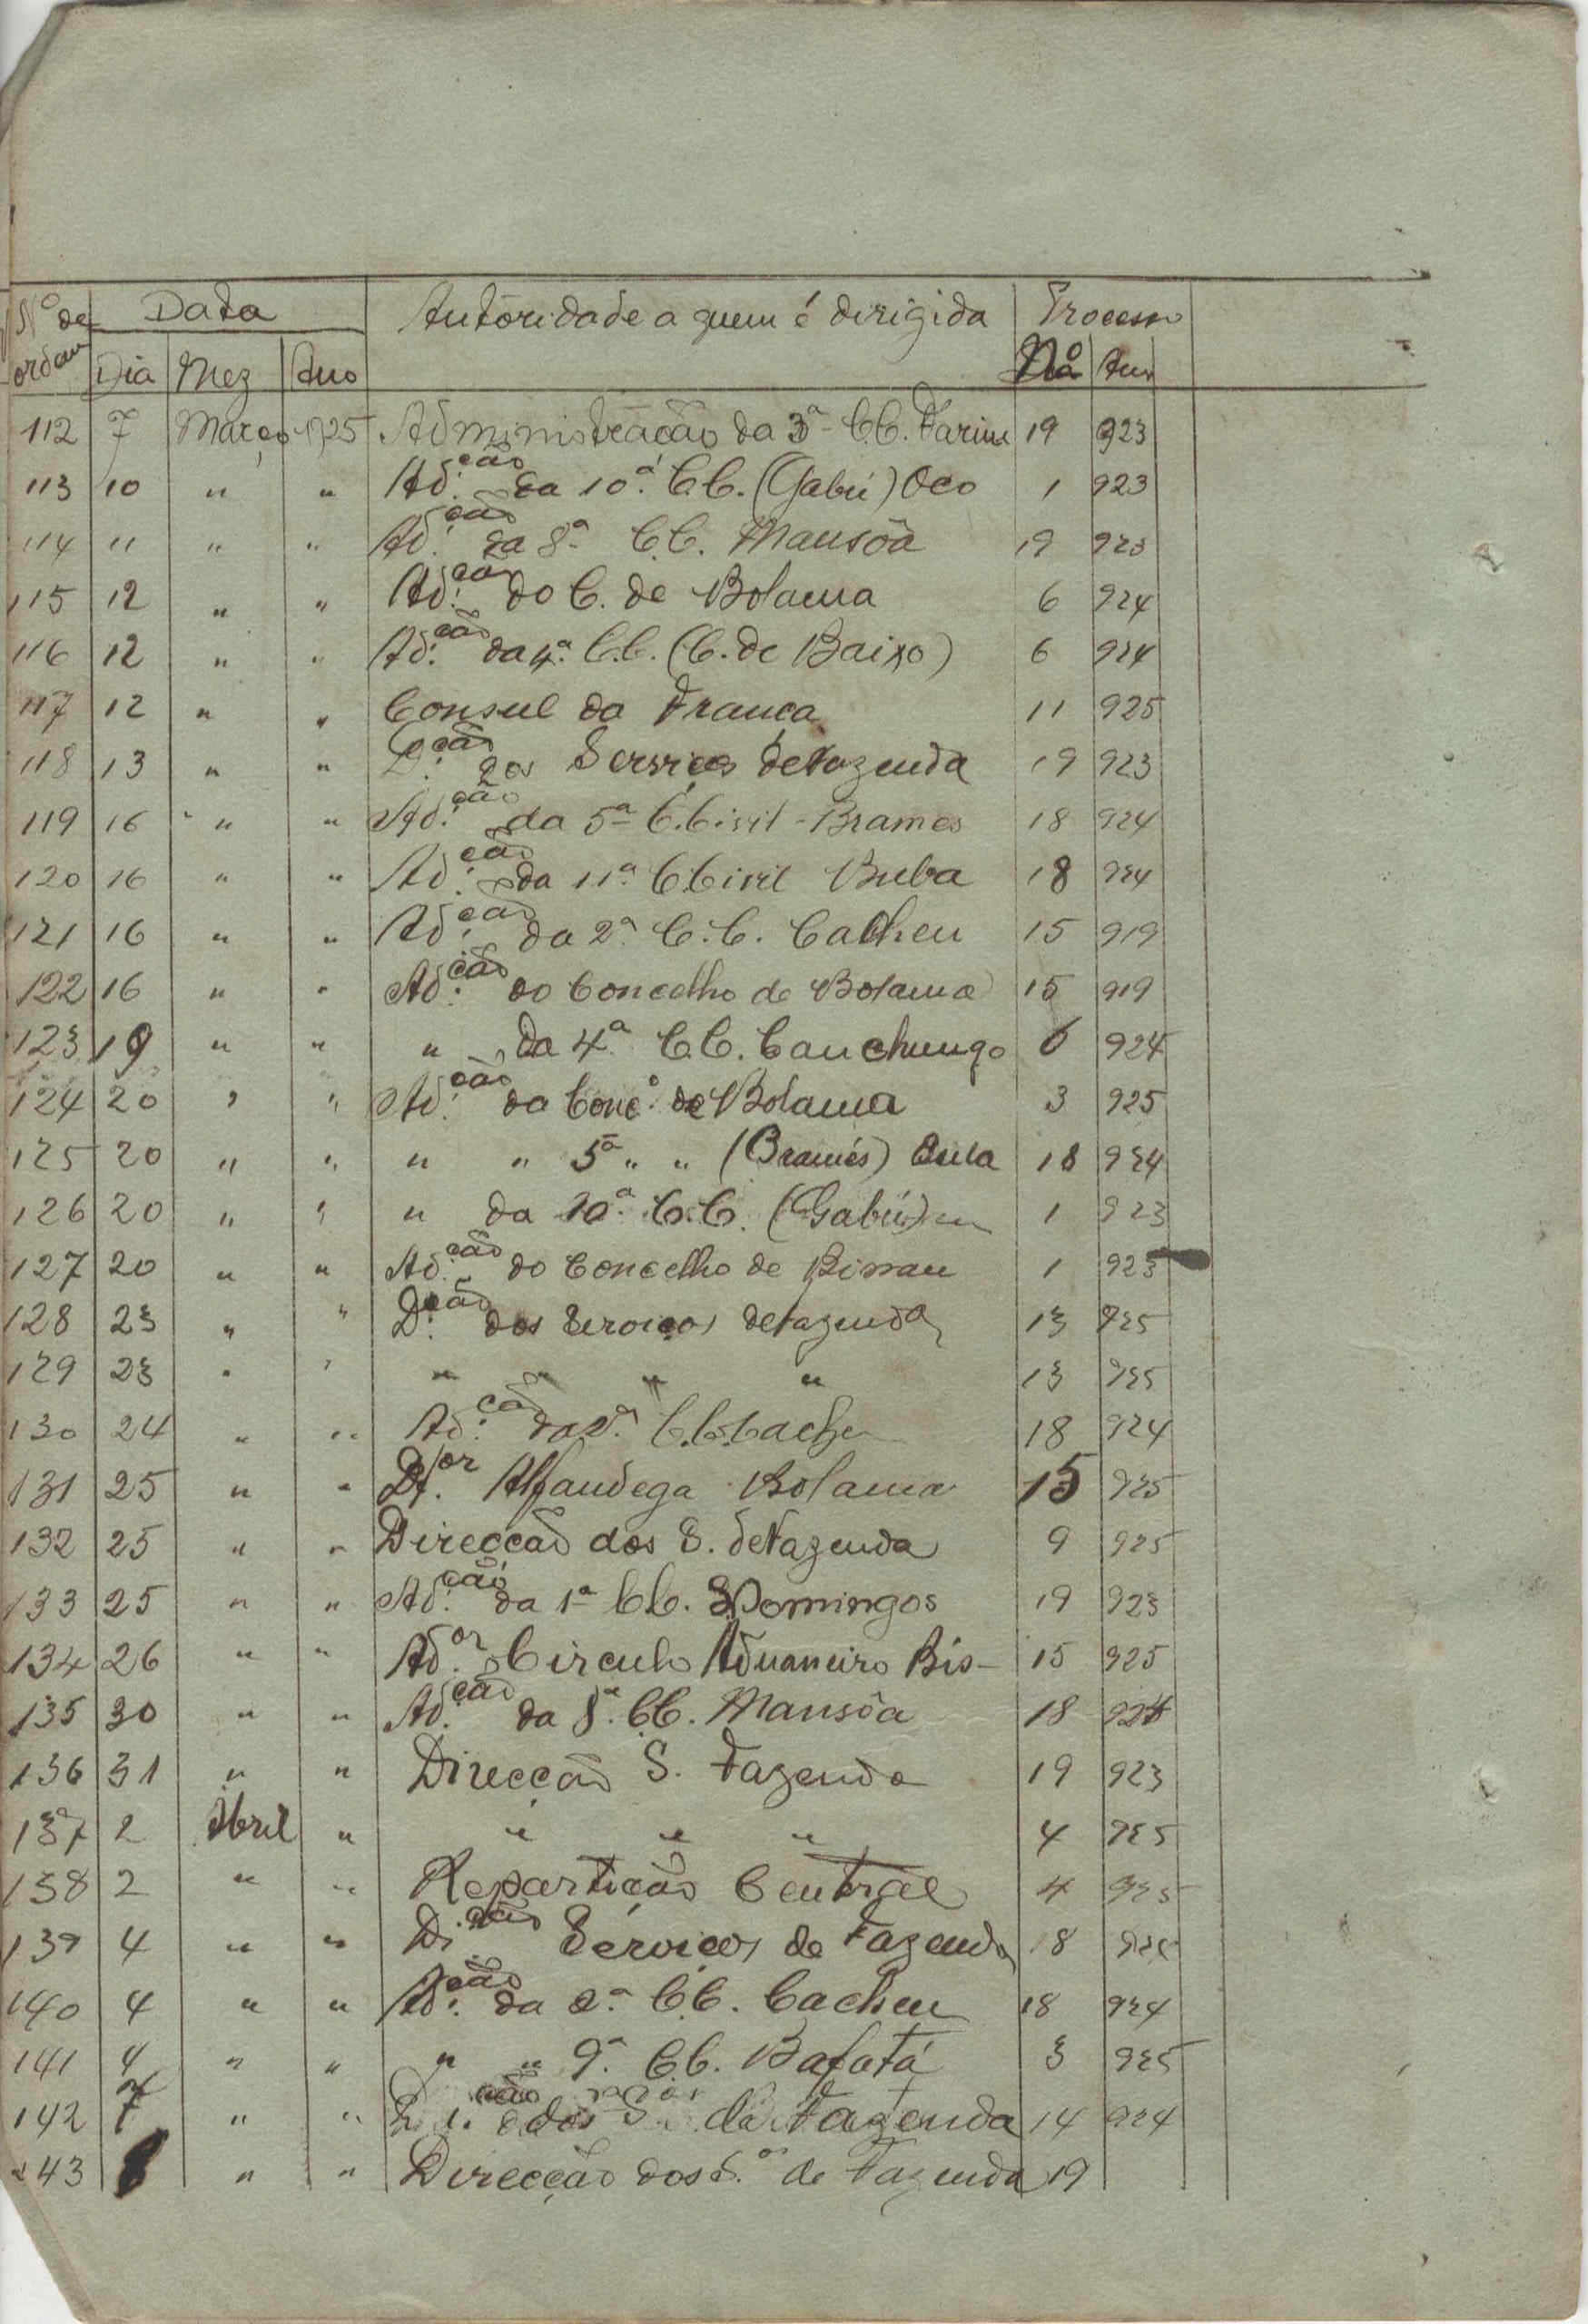 Nº de ordem Data Autoridade a quem é dirigida Processo
Dia Mez Ano Nº Ano
112 7 Março 1925 Administração da 3ª C.C. Farim 19 923
113 10 " " Ad.ção da 10ª C.C. (Gabú) Oco 1 923
114 11 " " Ad.ção da 8ª C.C. Mansôa 19 923
115 12 " " Ad.ção do C. de Bolama 6 924
116 12 " " Ad.ção da 4ª C.C. (C. de Baixo) 6 924
117 12 " " Consul da França 11 925
118 13 " " D.ção dos Serviços de Fazenda 19 923
119 16 " " Ad.ção da 5ª C. Civil - Brames 18 924
120 16 " " Ad.ção da 11ª C. Civil Buba 18 924
121 16 " " Ad.ção da 2ª C.C. Cacheu 15 919
122 16 " " Ad.ção do Concelho de Bolama 15 919
123 19 " " " da 4ª C.C. Canchungo 6 924
124 20 " " Ad.ção da Conc.º de Bolama 3 925
125 20 " " " " 5ª " " (Bramés) Bula 18 924
126 20 " " " da 10ª C.C. (Gabú) 1 923
127 20 " " Ad.ção do Concelho de Bissau 1 923
128 23 " " D.ção dos Serviços de Fazenda 13 925
129 23 " " " " " " 13 925
130 24 " " Ad.ção da 2ª C.C. Cacheu 18 924
131 25 " " D.or Alfandega Bolama 15 925
132 25 " " Direcção dos S. de Fazenda 9 925
133 25 " " Ad.ção da 1ª C.C. S Domingos 19 923
134 26 " " Ad.or Circulo Aduaneiro Bis- 15 925
135 30 " " Ad.ção da 8ª C.C. Mansôa 18 924
136 31 " " Direcção S. Fazenda 19 923
137 2 Abril " " " " 4 925
138 2 " " Repartição Central 4 925
139 4 " " Di.ção Serviços de Fazenda 18
140 4 " " Ad.ção da 2ª C.C. Cacheu 18 924
141 4 " " " " 9ª C.C. Bafatá 3 925
142 7 " " dos S. de Fazenda 14 924
143 8 " " Direcção dos S.os de Fazenda 19